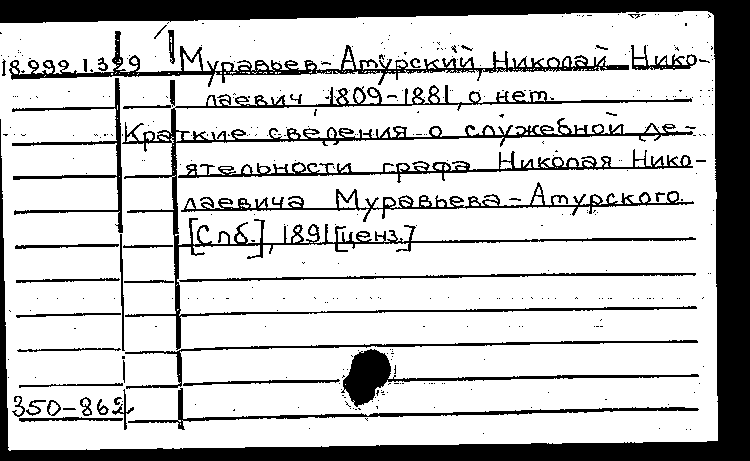 18.292.1.329 Муравьев-Амурский, Николай Нико-
лаевич, 1809-1881, о нем.
Краткие сведения о служебной де-
ятельности графа Николая Нико-
лаевича Муравьева-Амурского.
[Спб.], 1891 [ценз.]
350-862